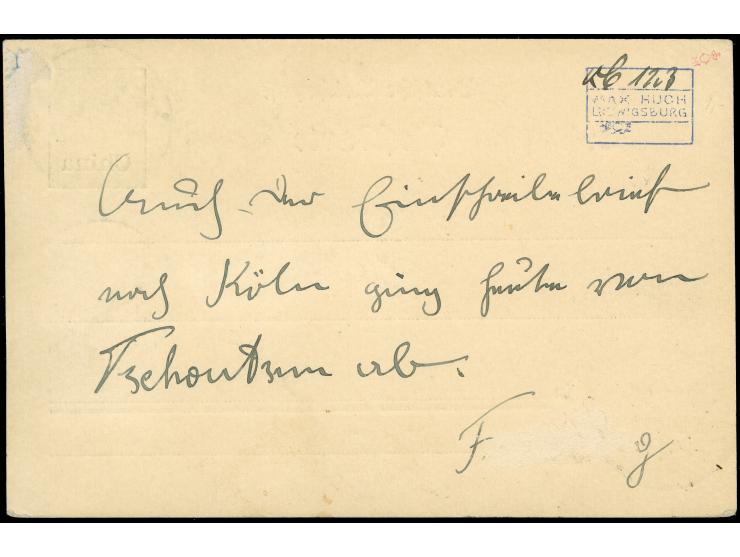 208
123
MAX HUCH
LUDWIGSBURG
China
Auch der Einschreibebrief
nach Köln ging heute von
Tschoutsun ab.
F. g